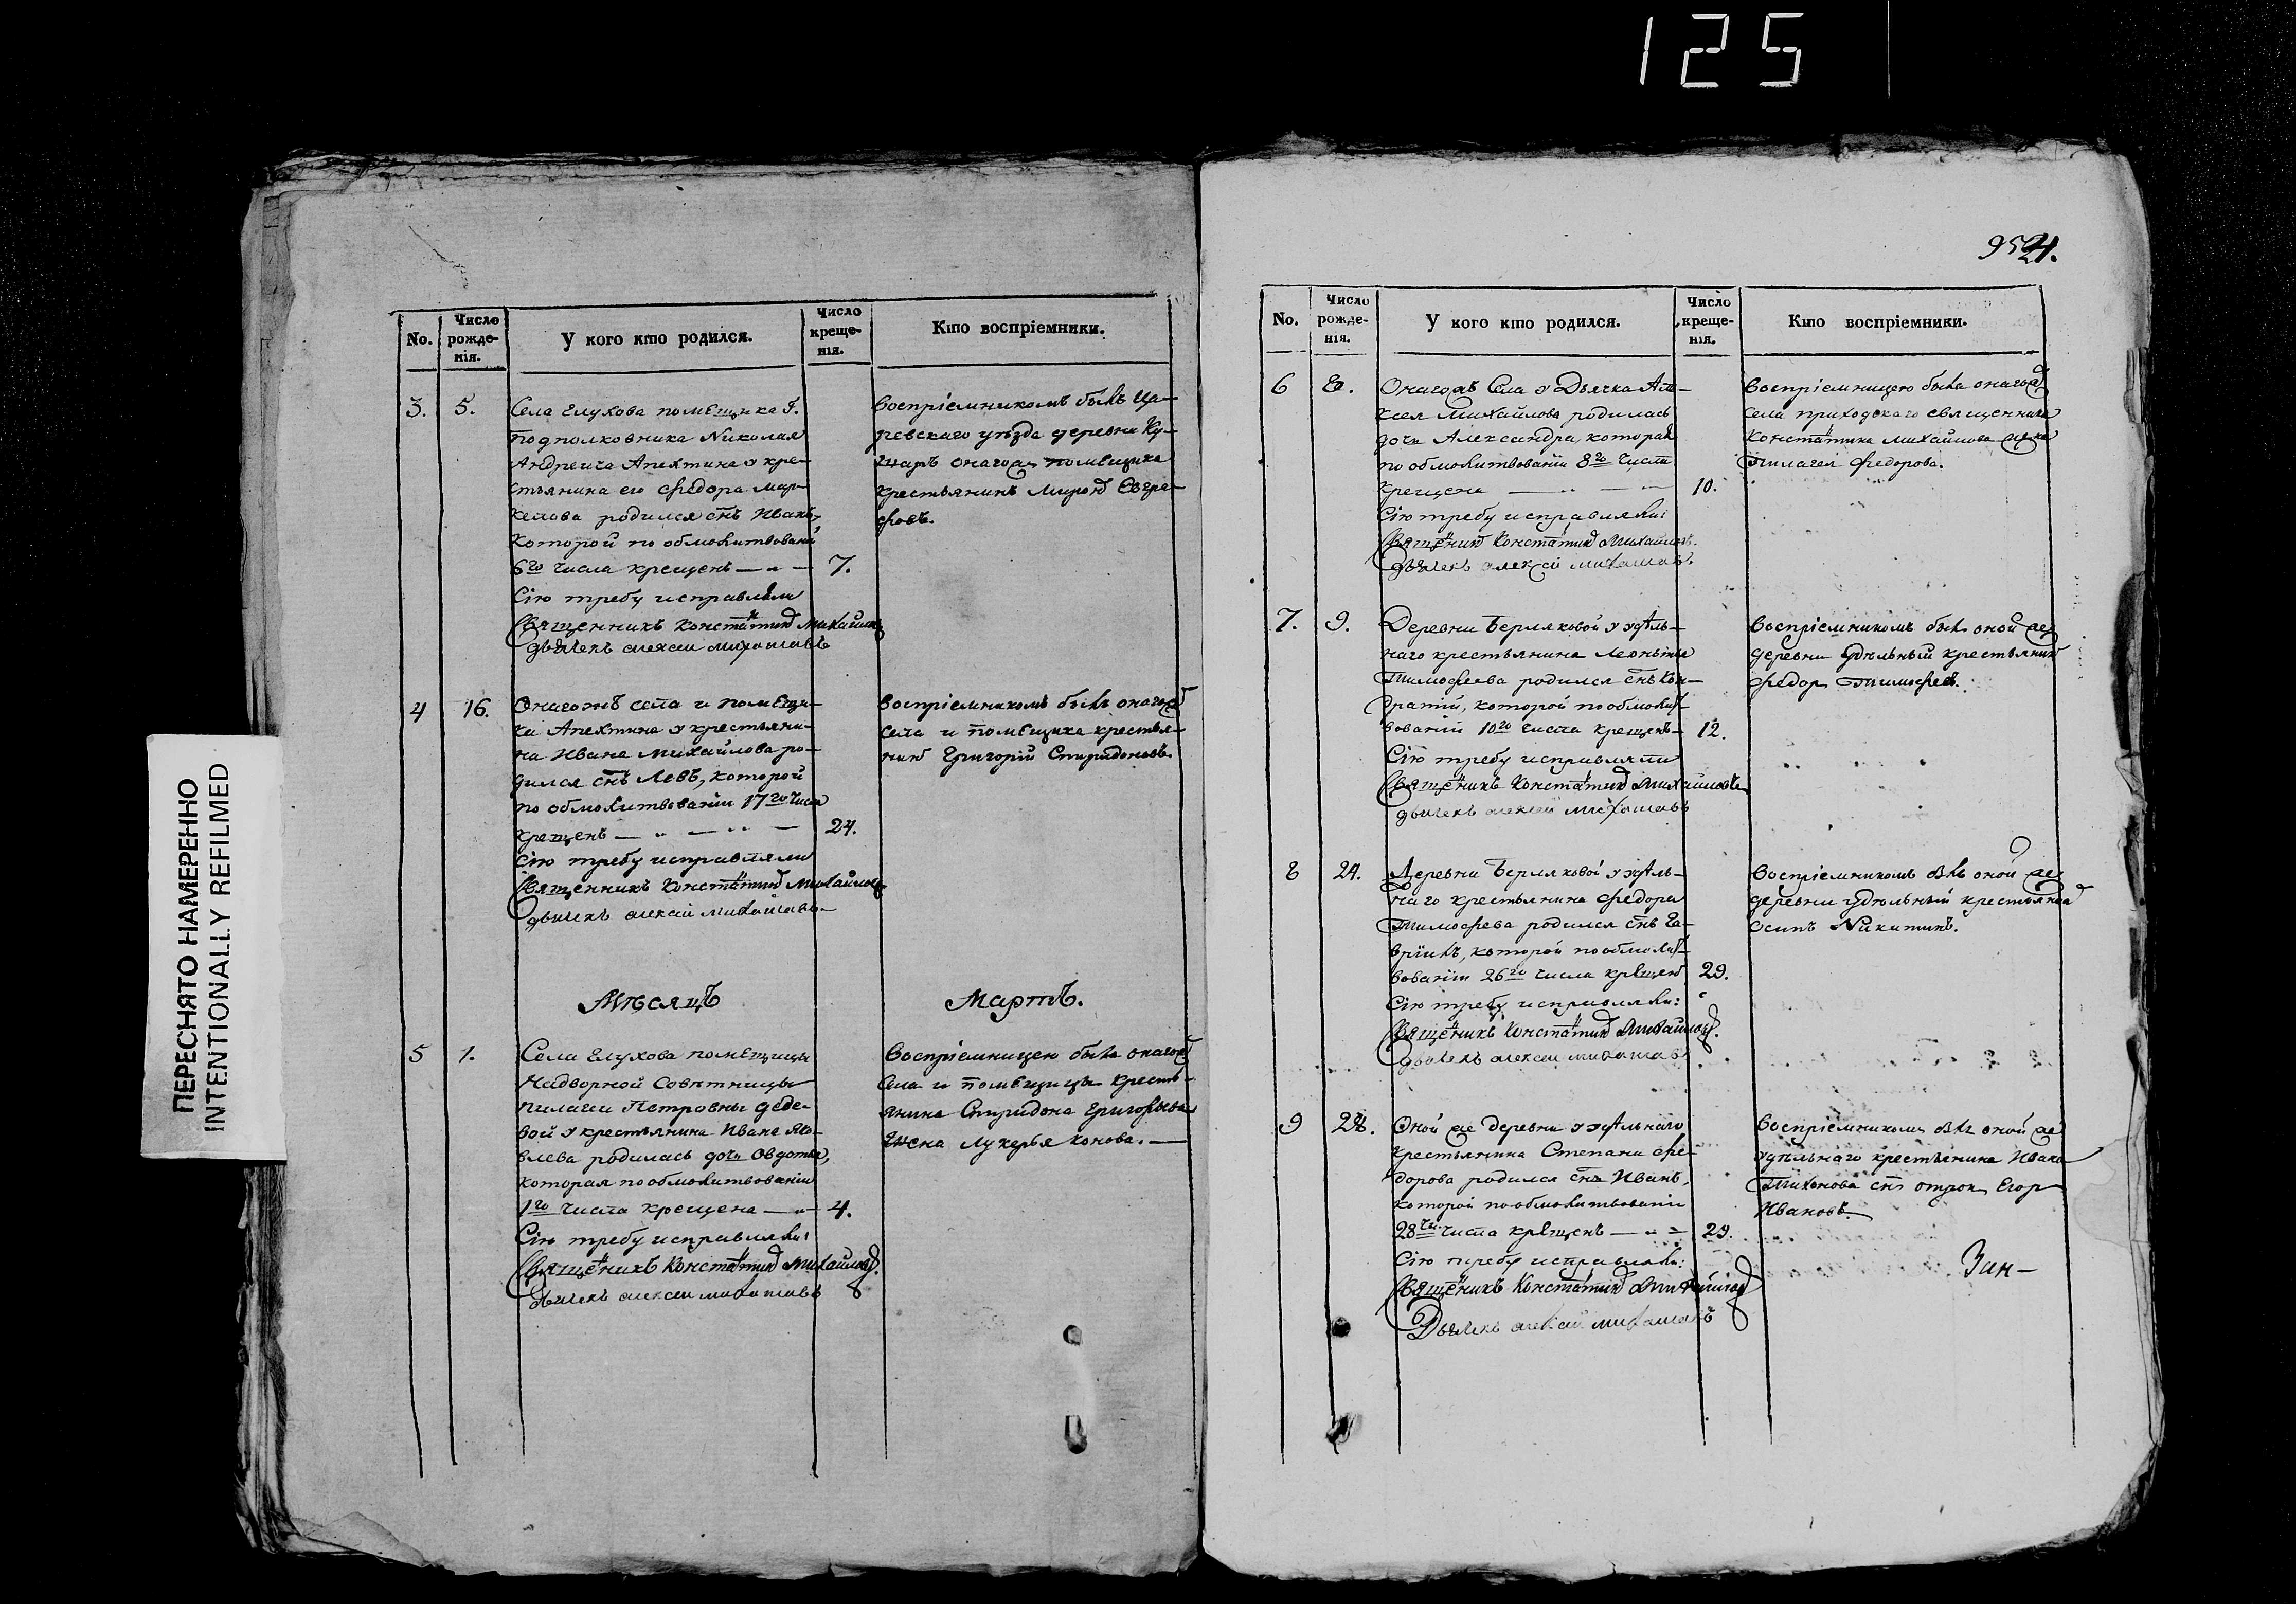 125
ПЕРЕСНЯТО НАМЕРЕННО
INTENTIONALLY REFILMED
No.
Число рожде-нія.
У кого кто родился.
Число креще-нія.
Кто воспріемники.
3. 5.
Села Глухова помѣщика Г.
подполковника Николая
Андреича Апехтина у кре-
стьянина его Федора Мар-
келова родился снъ Иванъ,
которой по обмолитвованіи
6го числа крещенъ — „ — 7.
Сію требу исправляли
Священникъ Констатинъ Михайловъ
дьячекъ алексеи михаиловъ
Воспріемникомъ былъ Ца-
ревскаго уѣзда деревни Ку-
онагожъ помѣщика
крестьянинъ Миронъ Евгра-
фовъ.
4 16.
Онагожъ села и помѣщи-
ка Апехтина у крестьяни-
на Ивана Михайлова ро-
дился снъ Левъ, которой
по обмолитвованіи 17го числа
крещенъ — „ — „ — 24.
Сію требу исправляли
Священникъ Констатинъ Михайловъ
дьячекъ алексей михаиловъ
Воспріемникомъ былъ онагожъ
села и помѣщика крестья-
нинъ Григорій Спиридоновъ
Мѣсяцъ Мартъ.
5 1.
Села Глухова помѣщицы
Надворной Совѣтницы
Пилагеи Петровны Деде-
вой у крестьянина Ивана Яко-
влева родилась дочь Овдотья,
которая по обмолитвованіи
1го числа крещена — „ — 4.
Сію требу исправляли:
Священикъ Констатинъ Михайловъ.
Дьячекъ алексеи михаиловъ
Воспріемницею была онагожъ
села и помѣщицы кресть-
янина Спиридона Григорьева
жена Лукерья Конова. —
95 21.
No.
Число рожде-нія.
У кого кто родился.
Число креще-нія.
Кто воспріемники.
6 8.
Онагожъ Села у Дьячка Але-
ксея Михайлова родилась
дочь Александра, которая
по обмолитвованіи 8го числа
крещена — „ — — 10.
Сію требу исправляли:
Священикъ Констатинъ Михайловъ.
дьячекъ алексей михаиловъ
Воспріемницею была онагожъ
села приходскаго священника
Констатина Михайлова жена
Пилагея Федорова.
7. 9.
Деревни Берляковой у удѣль-
наго крестьянина Леонтья
Тимофеева родился снъ Кон-
дратій, которой по обмолит-
вованіи 10го числа крещенъ — 12.
Сію требу исправляли
Священикъ Констатинъ Михайловъ
дьячекъ алексей михаиловъ
Воспріемникомъ былъ оной же
деревни удѣльный крестьянинъ
Федоръ Тимофеевъ.
8 24.
Деревни Берляковой у удѣль-
наго крестьянина Федора
Тимофеева родился снъ Га-
вріилъ, которой по обмолит-
вованіи 26го числа крещенъ 29.
Сію требу исправляли:
Священикъ Констатинъ Михайловъ.
дьячекъ алексеи михаиловъ
Воспріемникомъ былъ оной же
деревни удѣльный крестьянинъ
Осипъ Никитинъ.
9 28.
Оной же деревни у удѣльнаго
крестьянина Степана Фе-
дорова родился снъ Иванъ,
которой по обмолитвованіи
28 числа крещенъ — „ — 29.
Сію требу исправляли:
Священикъ Констатинъ Михайловъ
Дьячекъ алексей михаиловъ
Воспріемникомъ былъ оной же
удѣльнаго крестьянина Ивана
Тихонова снъ отрокъ Егоръ
Ивановъ.